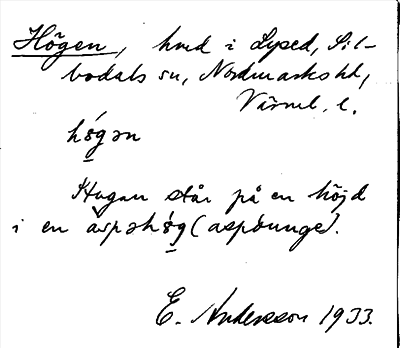 Högen, hmd i Lysed, Sil-
bodals sn, Nordmarks hd,
Värml. l.
hǿgən
Stugan står på en höjd
i en aspəhǿg (aspdunge).
E. Andersson 1933.